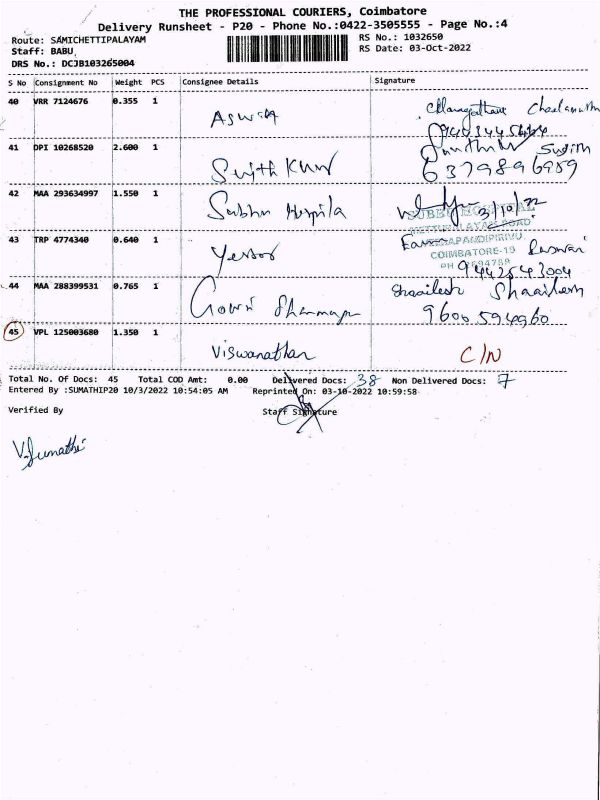 THE PROFESSIONAL COURIERS, Coimbatore
Delivery Runsheet - P20 - Phone No.:0422-3505555 - Page No.:4
Route: SAMICHETTIPALAYAM RS No.: 1032650
Staff: BABU RS Date: 03-Oct-2022
DRS No.: DCJB103265004
S No Consignment No Weight PCS Consignee Details Signature
40 VRR 7124676 0.355 1
Aswin
41 DPI 10268520 2.600 1
Sujith Kumar Sujith
6379896959
42 MAA 293634997 1.550 1
Subbu Hospital 3/10/22
SUBBU HOSPITAL
METTUPALAYAM ROAD
43 TRP 4774340 0.640 1
COIMBATORE-19
PH
9442543004
44 MAA 288399531 0.765 1 Shailesh
Gowri 9600594960
45 VPL 125003680 1.350 1
Viswanathan C/N
Total No. Of Docs: 45 Total COD Amt: 0.00 Delivered Docs: 38 Non Delivered Docs: 7
Entered By :SUMATHIP20 10/3/2022 10:54:05 AM Reprinted On: 03-10-2022 10:59:58
Verified By Staff Signature
V. Sumathi